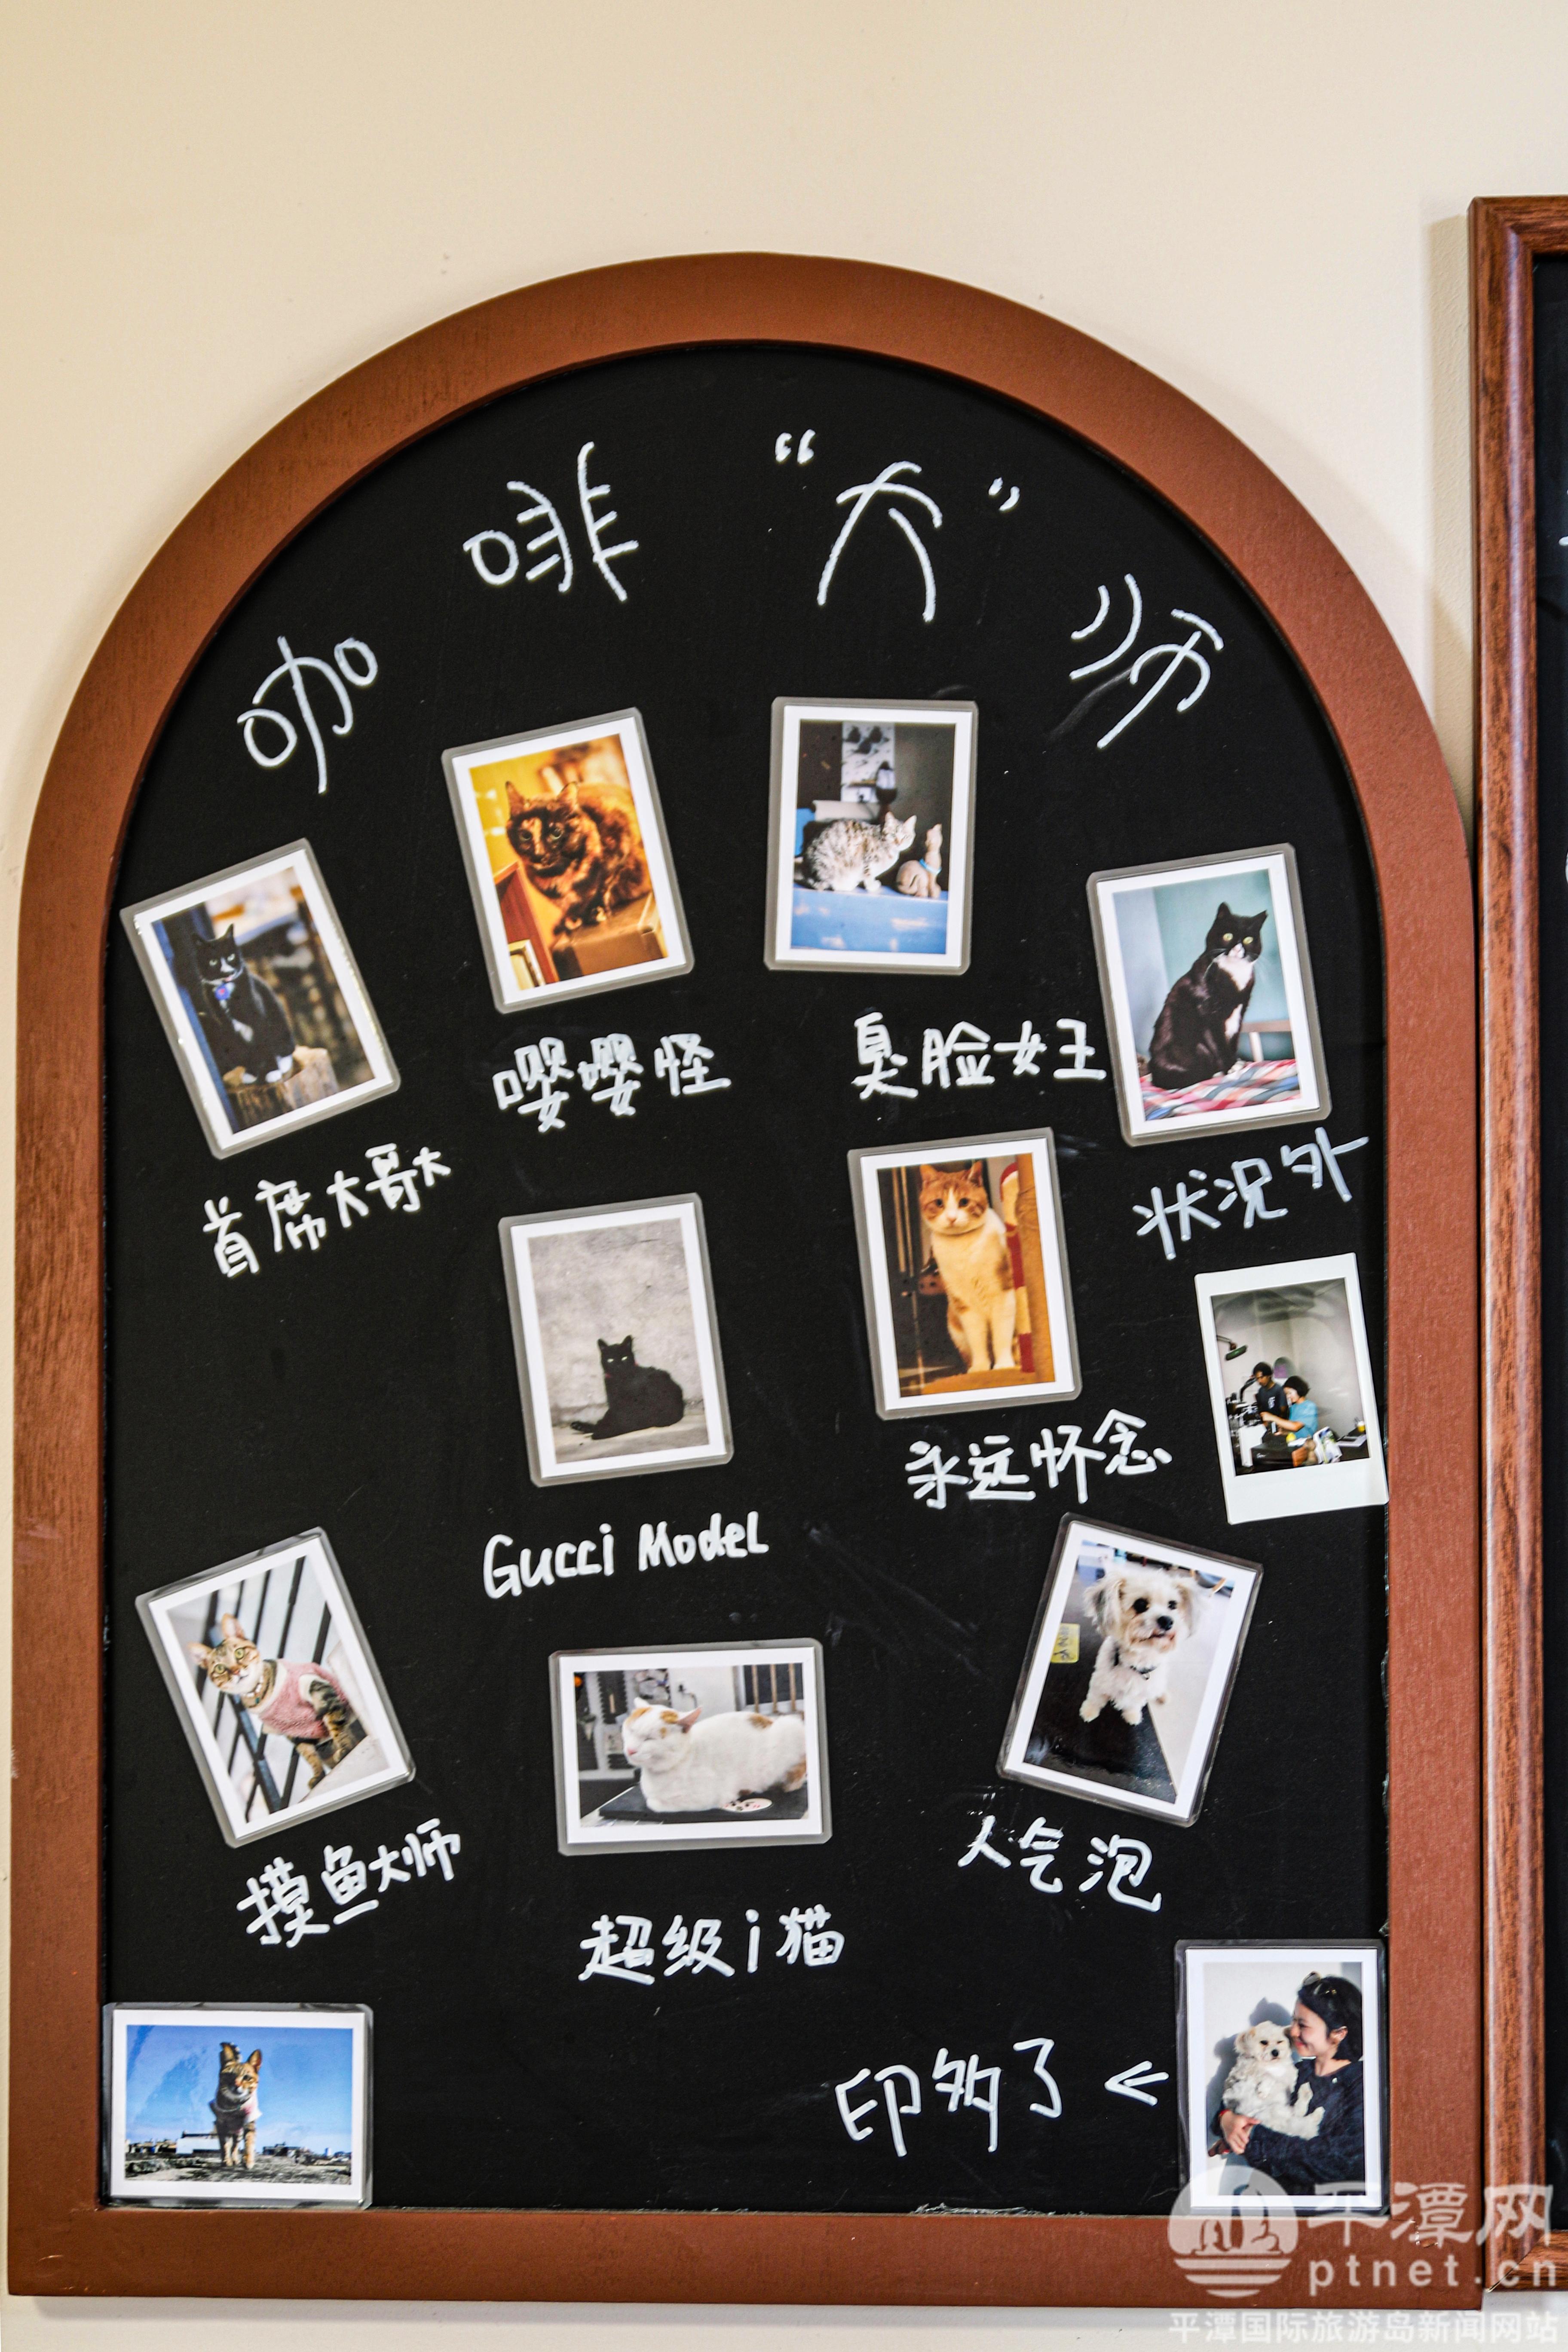 咖啡“大”师
首席大哥大
嘤嘤怪
臭脸女王
状况外
Gucci Model
永远怀念
摸鱼大师
超级i猫
人气泡
印多了 ←
平潭网
ptnet.cn
平潭国际旅游岛新闻网站